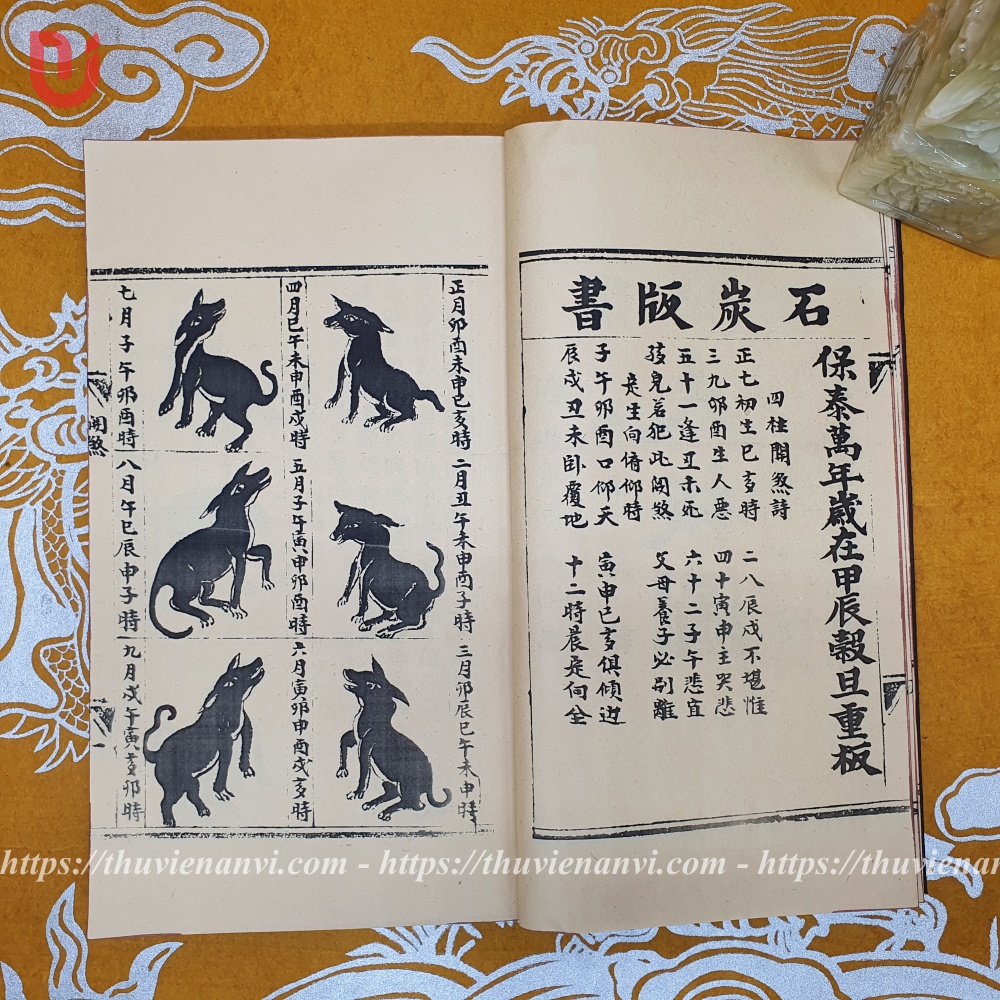 石炭版書
保泰萬年歲在甲辰穀旦重板
四柱関煞詩
正七初生巳亥時 二八辰戌不堪惟
三九卯酉生人惡 四十寅申主哭悲
五十一逢丑未死 六十二子午悲宜
孩兒若犯此関煞 父母養子必别離
是生向俯仰時
子午卯酉口仰天 寅申巳亥俱傾边
辰戌丑未卧覆地 十二時晨是何全
正月卯酉未申巳亥時
二月丑午未申酉子時
三月卯辰巳午未申時
四月巳午未申酉戌時
五月子午寅申卯酉時
六月寅卯申酉戌亥時
七月子午卯酉時
八月午巳辰申子時
九月戌午寅亥卯時
関煞
https://thuvienanvi.com - https://thuvienanvi.com - https://thuvienan